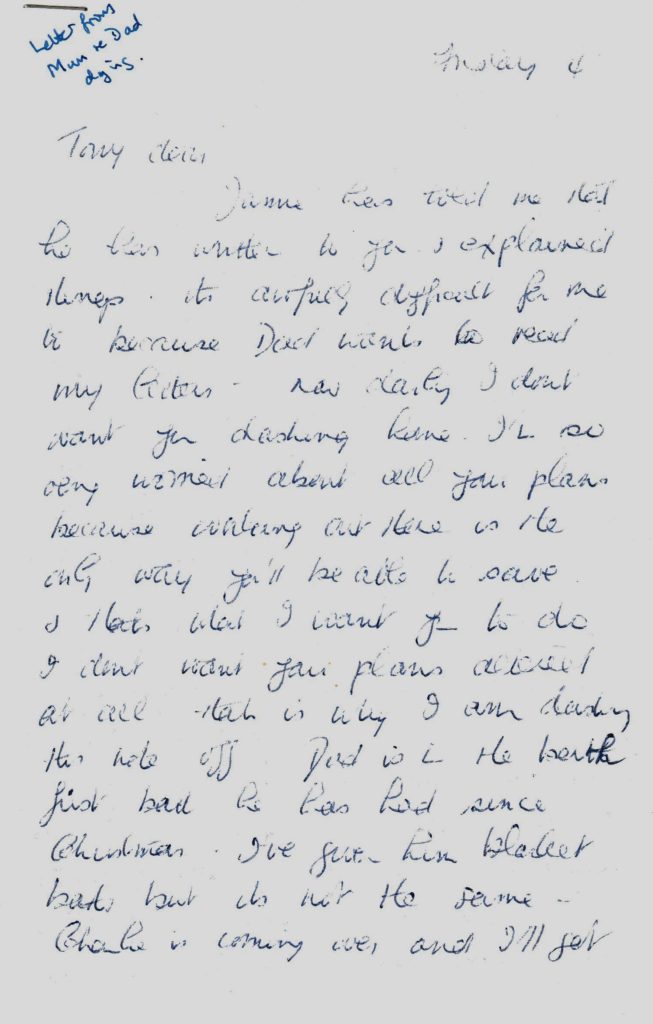 Letter from
Mum re Dad
dying.
Friday 4
Tony dear
has told me that
he has written to you & explained
things. its awfully difficult for me
to because Dad wants to read
my letters - now darling I dont
want you dashing home. I'm so
very worried about all your plans
because working out there is the
only way you'll be able to save
& thats what I want you to do
I dont want your plans altered
at all that is why I am dashing
this note off Dad is in the bath
first bath he has had since
Christmas. I've given him blanket
baths but its not the same -
Charlie is coming over and I'll get